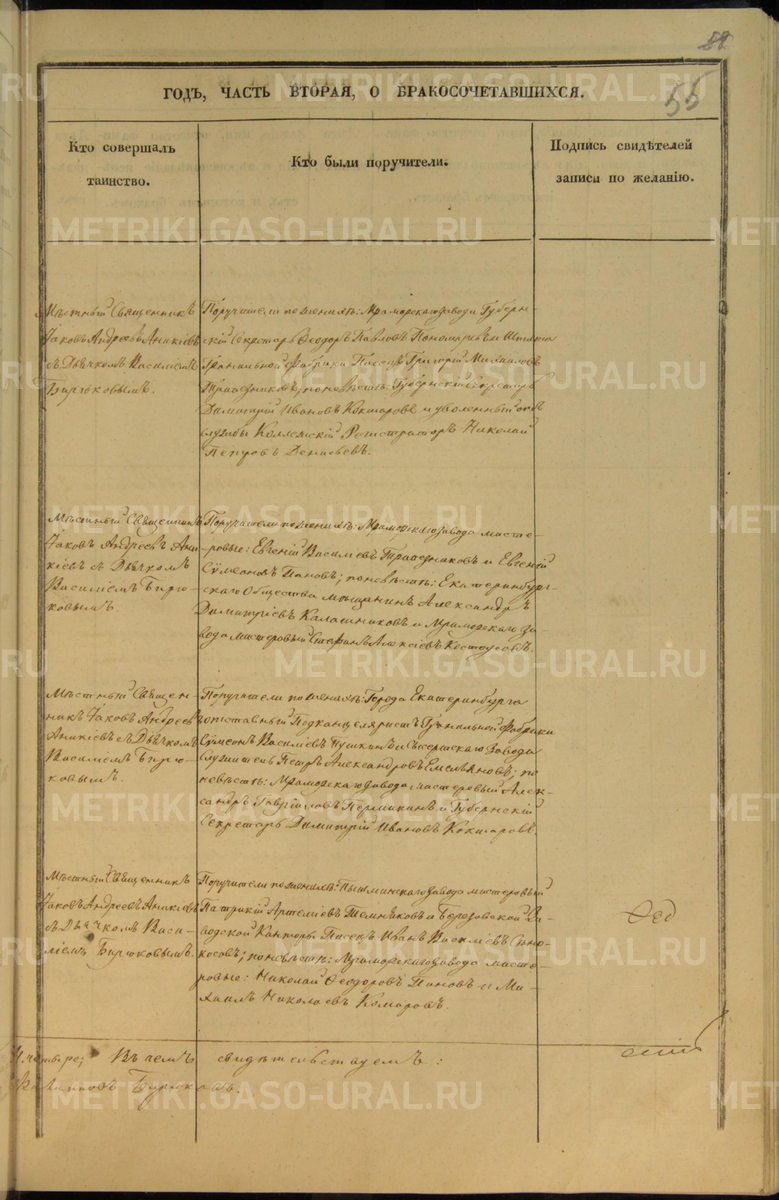 55
ГОДЪ, ЧАСТЬ ВТОРАЯ, О БРАКОСОЧЕТАВШИХСЯ.
Кто совершалъ
таинство.
Кто были поручители.
Подпись свидѣтелей
записи по желанію.
Мѣстный Священникъ
Іаковъ Андреевъ Аникіевъ
съ Дьячкомъ Василіемъ
Бирюковымъ.
Поручители по женихѣ: Мраморскаго завода Губерн-
скій Секретарь Ѳеодоръ Павловъ и
Гранильной Фабрики Григорій Михаиловъ
по невѣстѣ: Губернскій Секретарь
Димитрій Ивановъ Кокшаровъ и уволенный отъ
службы Коллежскій Регистраторъ Николай
Петровъ Денисьевъ.
Мѣстный Священникъ
Іаковъ Андреевъ Ани-
кіевъ съ Дьячкомъ
Василіемъ Бирю-
ковымъ
Поручители по женихѣ: Мраморскаго завода масте-
ровые: Евгеній Васильевъ Трапезниковъ и Евгеній
Сумеоновъ Пановъ; по невѣстѣ: Екатеринбург-
скаго Общества мѣщанинъ Александръ
Димитріевъ Калашниковъ и Мраморскаго за-
вода мастеровый Стефанъ Алексіевъ Костоусовъ.
Мѣстный Священ-
никъ Іаковъ Андреевъ
Аникіевъ съ Дьячкомъ
Василіемъ Бирю-
ковымъ.
Поручители по женихѣ: Города Екатеринбурга
отставный Подканцеляристъ Гранильной Фабрики
Сумеонъ Василіевъ Пушкинъ и Сысертскаго Завода
служитель Петръ Александровъ Емельяновъ; по
невѣстѣ: Мраморскаго Завода мастеровый Алек-
сандръ Гавріиловъ Пермикинъ и Губернскій
Секретарь Димитрій Ивановъ Кокшаровъ.
Мѣстный Священникъ
Іаковъ Андреевъ Аникіевъ
съ Дьячкомъ Васи-
ліемъ Бирюковымъ.
Поручители по женихѣ: Пышминскаго Завода мастеровый
Патрикій Артеміевъ Темниковъ и Березовской За-
водской Конторы Писецъ Иванъ Василіевъ Сино-
косовъ; по невѣстѣ: Мраморскаго Завода масте-
ровые: Николай Ѳеодоровъ Пановъ и Ми-
хаилъ Николаевъ Комаровъ.
Ѳед
четыре; Въ чемъ свидѣтельствуемъ:
Бирюковъ.
METRIKI.GASO-URAL.RU